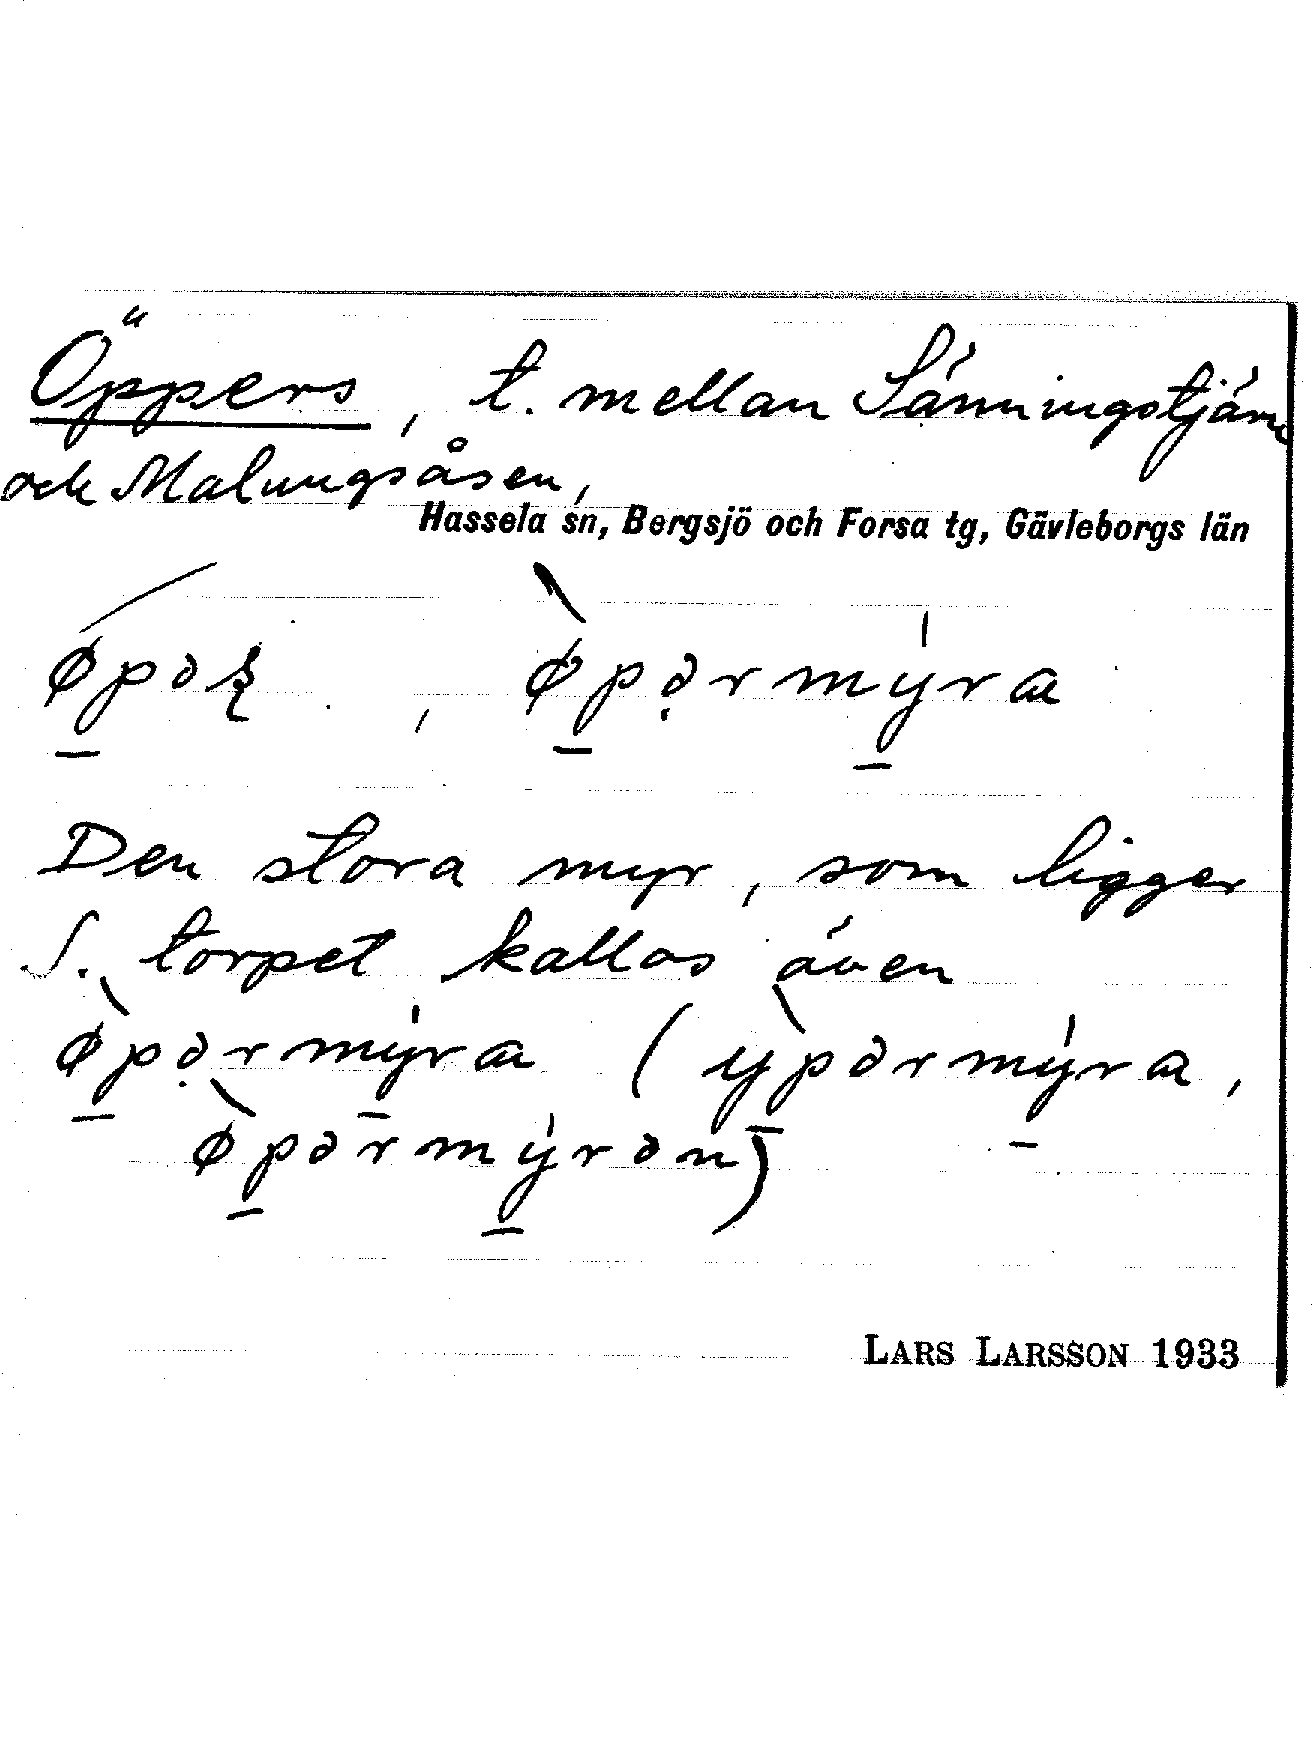 Öppers, t. mellan Sänningstjärn
och Malungsåsen,
Hassela sn, Bergsjö och Forsa tg, Gävleborgs län
øpəʂ, øpərmyra
Den stora myr, som ligger
S. torpet kallas även
øpərmyra (ypərmyra,
øpərmyrən)
LARS LARSSON 1933